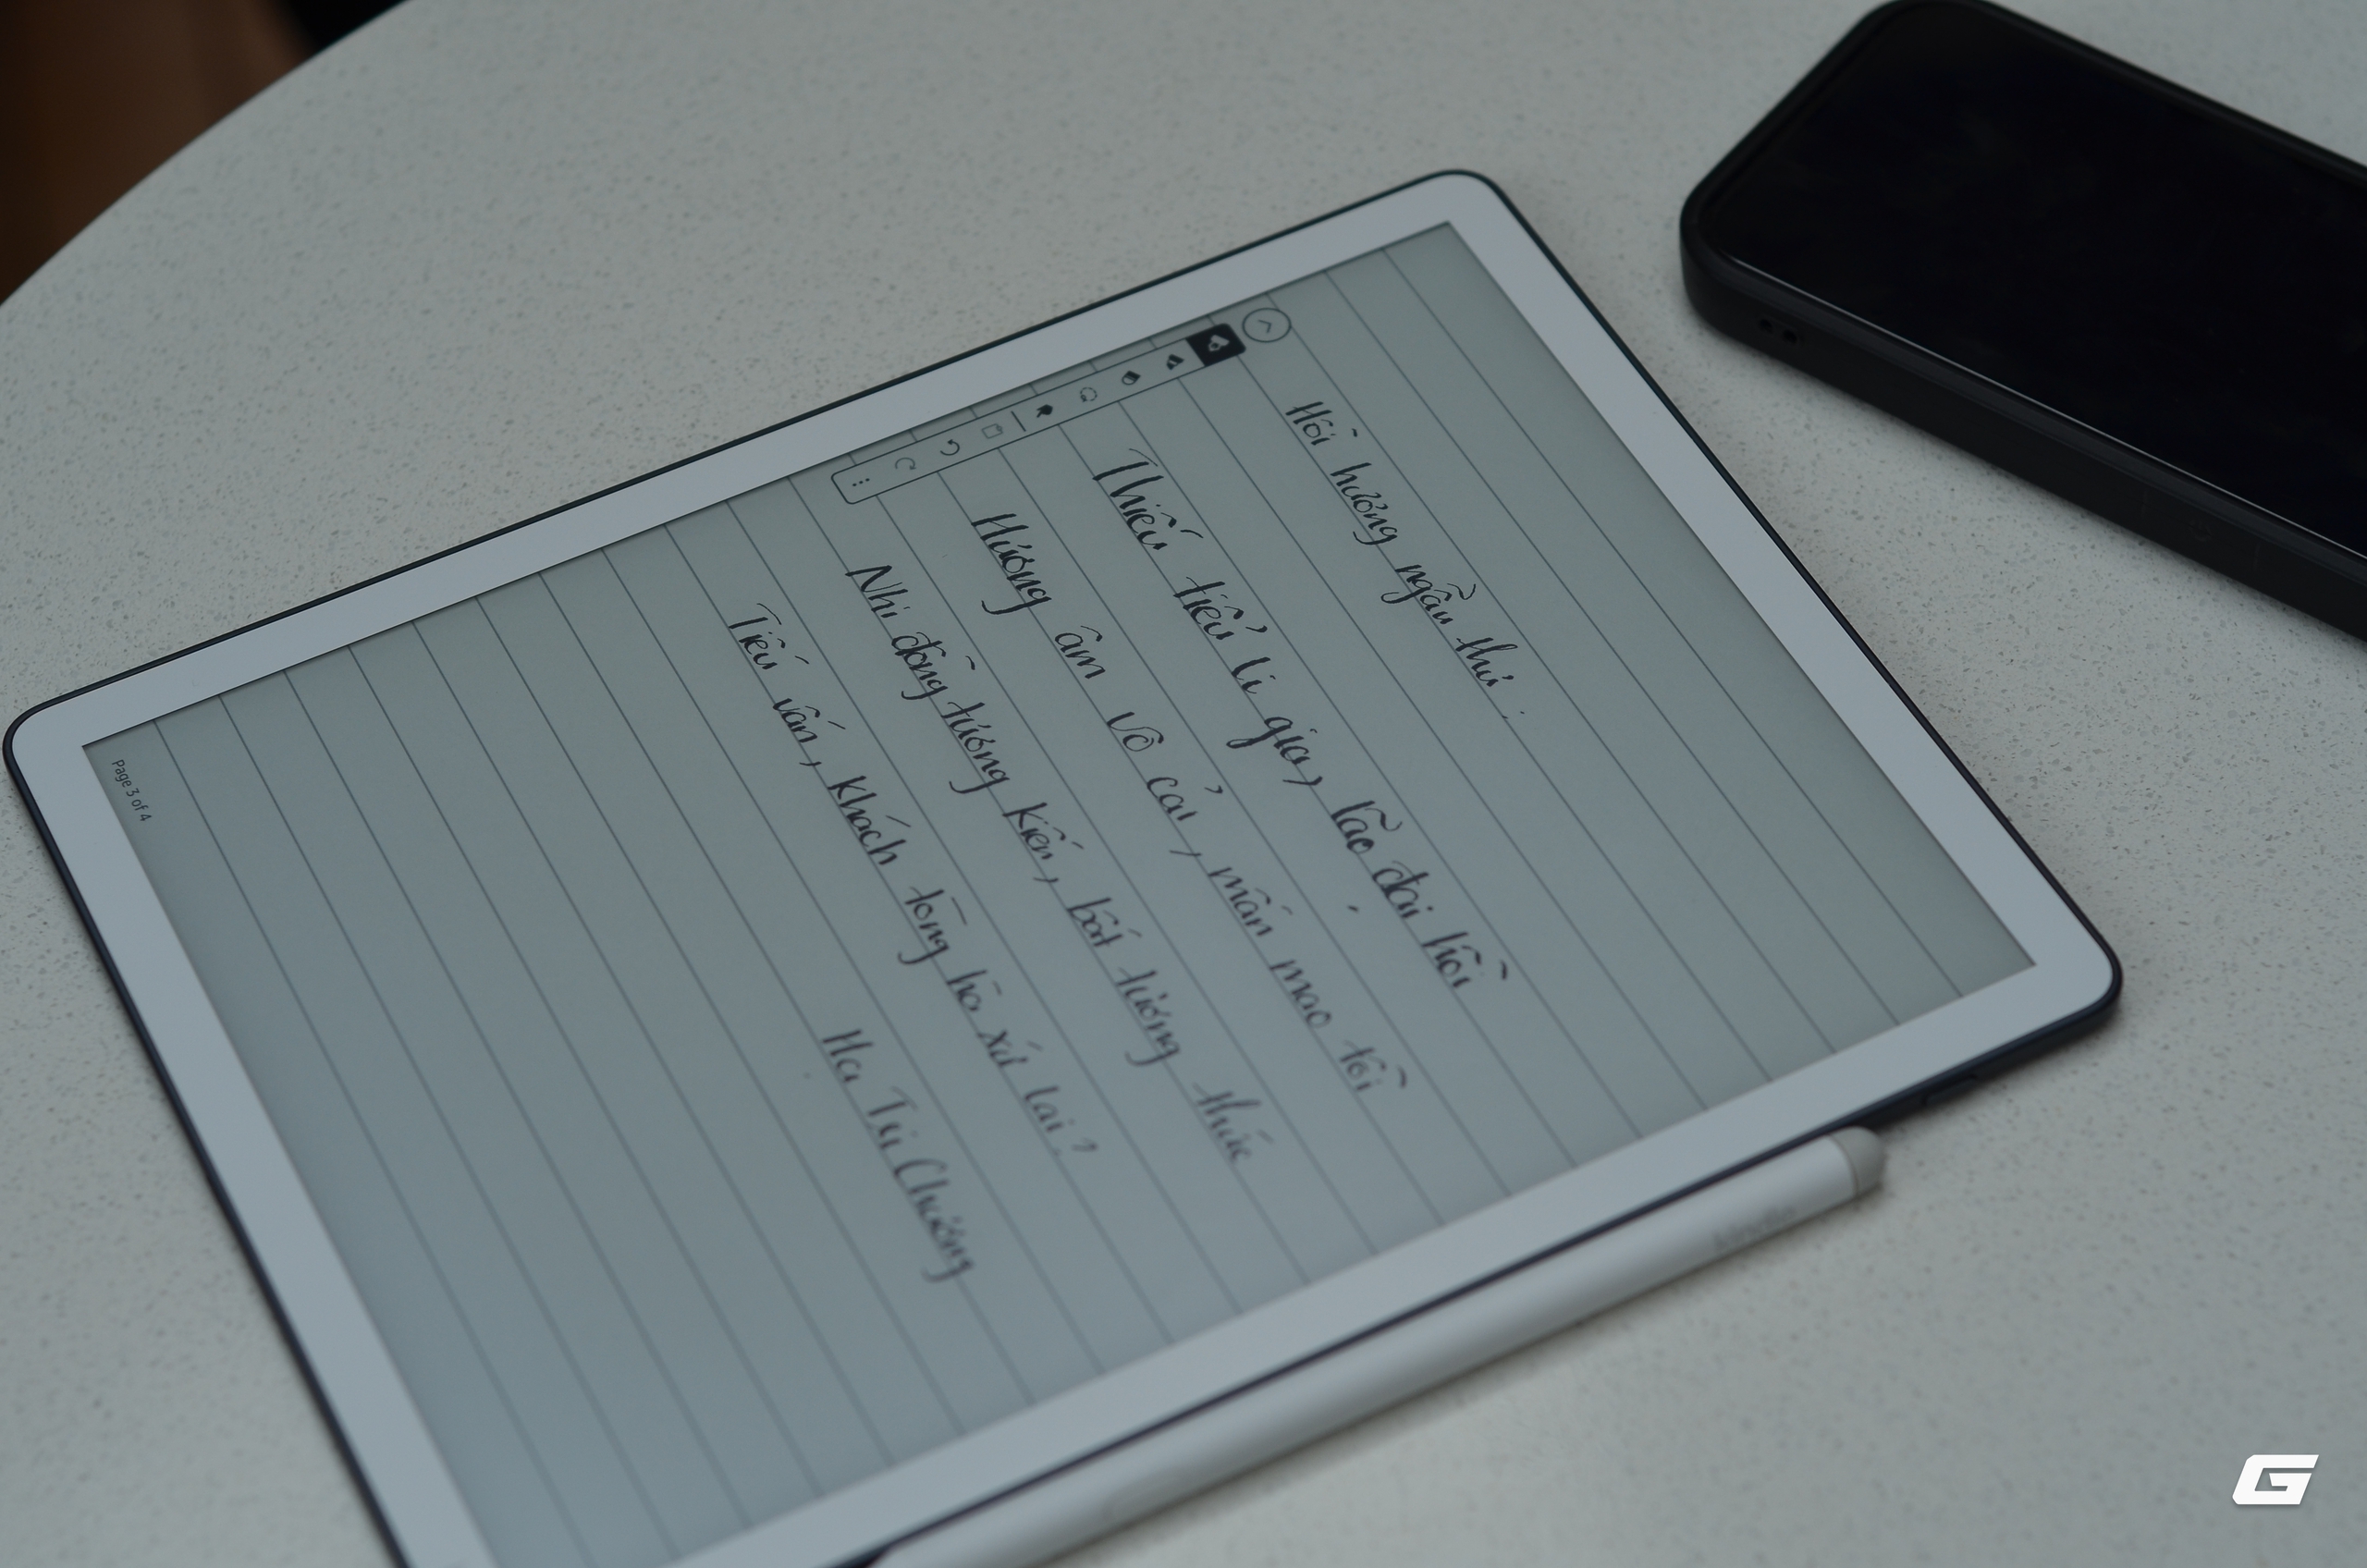 Hồi hương ngẫu thư.
Thiếu tiểu li gia, lão đại hồi
Hương âm vô cải, mấn mao tồi
Nhi đồng tương kiến, bất tương thức
Tiếu vấn, khách tòng hà xứ lai?
Hạ Tri Chương
Page 3 of 4